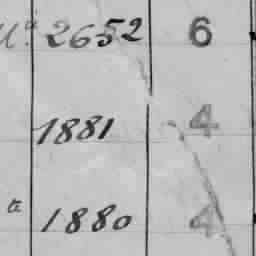 Mª 2652 6
1881 4
a 1880 4